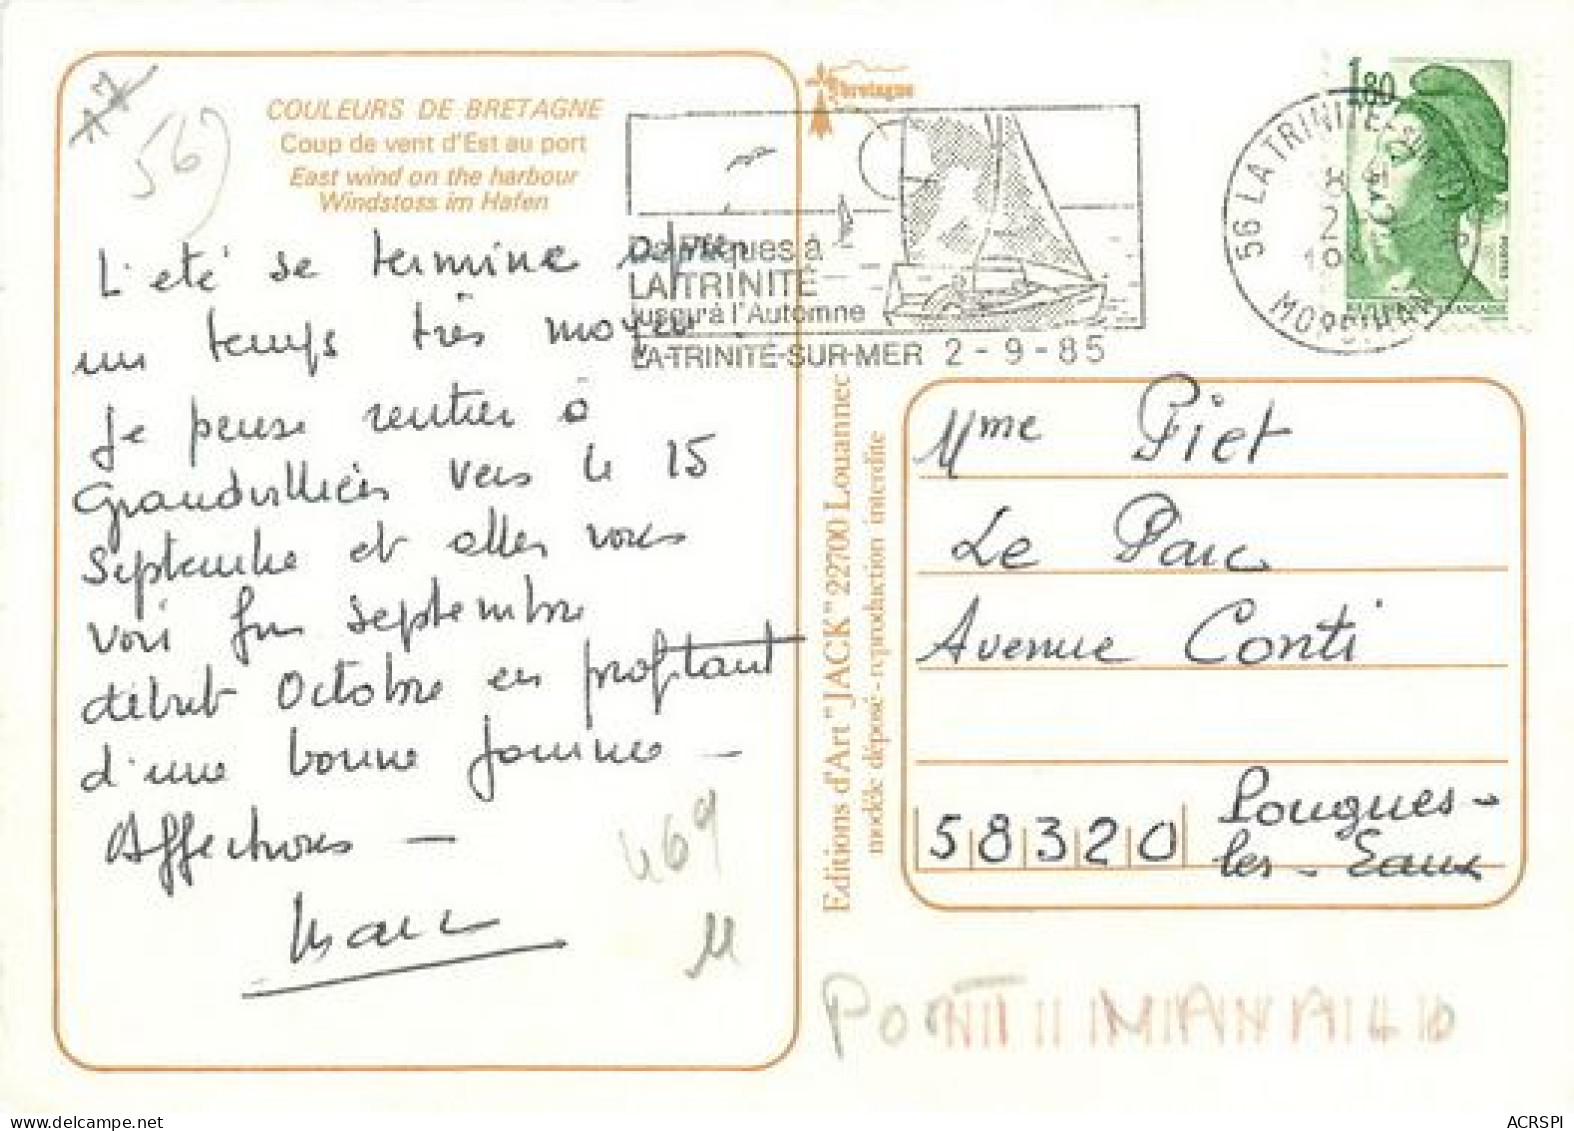 COULEURS DE BRETAGNE
Coup de vent d'Est au port
East wind on the harbour
Windstoss im Hafen
17
56)
L'eté se termine après
un temps très moyen
Je pense rentrer à
Grandvilliers vers le 15
Septembre et aller vous
voir fin septembre
début Octobre en profitant
d'une bonne journée –
Affections –
Marc
469
M
bretagne
De Pâques à
LA TRINITÉ
jusqu'à l'Automne
LA-TRINITÉ-SUR-MER 2-9-85
56 LA TRINITE-SUR
MORBIHAN
1,80
Editions d'Art "JACK" 22700 Louannec
modèle déposé - reproduction interdite
Mme Piet
Le Parc
Avenue Conti
58320 Pougues-
les-Eaux
PORT
ACRSPI